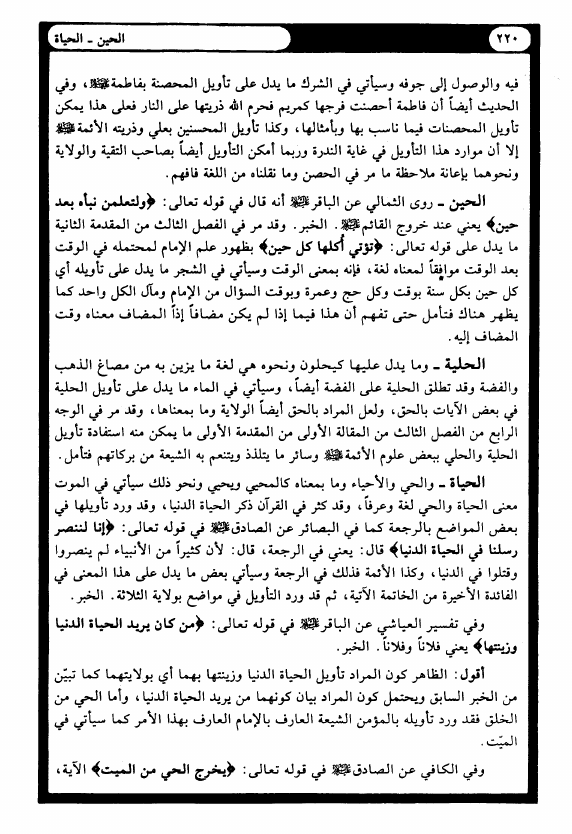 ٢٢٠
الحين ـ الحياة
فيه والوصول إلى جوفه وسيأتي في الشرك ما يدل على تأويل المحصنة بفاطمة ﷺ، وفي
الحديث أيضاً أن فاطمة أحصنت فرجها كمريم فحرم الله ذريتها على النار فعلى هذا يمكن
تأويل المحصنات فيما ناسب بها وبأمثالها، وكذا تأويل المحسنين بعلي وذريته الأئمة ﷺ
إلا أن موارد هذا التأويل في غاية الندرة وربما أمكن التأويل أيضاً بصاحب التقية والولاية
ونحوهما بإعانة ملاحظة ما مر في الحصن وما نقلناه من اللغة فافهم.
الحين ـ روى الثمالي عن الباقر ﷺ أنه قال في قوله تعالى: ﴿ولتعلمن نبأه بعد
حين﴾ يعني عند خروج القائم ﷺ. الخبر. وقد مر في الفصل الثالث من المقدمة الثانية
ما يدل على قوله تعالى: ﴿تؤتي أُكلها كل حين﴾ بظهور علم الإمام لمحتمله في الوقت
بعد الوقت موافقاً لمعناه لغة، فإنه بمعنى الوقت وسيأتي في الشجر ما يدل على تأويله أي
كل حين بكل سنة بوقت وكل حج وعمرة وبوقت السؤال من الإمام ومآل الكل واحد كما
يظهر هناك فتأمل حتى تفهم أن هذا فيما إذا لم يكن مضافاً إذاً المضاف معناه وقت
المضاف إليه.
الحلية ـ وما يدل عليها كيحلون ونحوه هي لغة ما يزين به من مصاغ الذهب
والفضة وقد تطلق الحلية على الفضة أيضاً، وسيأتي في الماء ما يدل على تأويل الحلية
في بعض الآيات بالحق، ولعل المراد بالحق أيضاً الولاية وما بمعناها، وقد مر في الوجه
الرابع من الفصل الثالث من المقالة الأولى من المقدمة الأولى ما يمكن منه استفادة تأويل
الحلية والحلي ببعض علوم الأئمة ﷺ وسائر ما يتلذذ ويتنعم به الشيعة من بركاتهم فتأمل.
الحياة ـ والحي والأحياء وما بمعناه كالمحيي ويحيي ونحو ذلك سيأتي في الموت
معنى الحياة والحي لغة وعرفاً، وقد كثر في القرآن ذكر الحياة الدنيا، وقد ورد تأويلها في
بعض المواضع بالرجعة كما في البصائر عن الصادق ﷺ في قوله تعالى: ﴿إنا لننصر
رسلنا في الحياة الدنيا﴾ قال: يعني في الرجعة، قال: لأن كثيراً من الأنبياء لم ينصروا
وقتلوا في الدنيا، وكذا الأئمة فذلك في الرجعة وسيأتي بعض ما يدل على هذا المعنى في
الفائدة الأخيرة من الخاتمة الآتية، ثم قد ورد التأويل في مواضع بولاية الثلاثة. الخبر.
وفي تفسير العياشي عن الباقر ﷺ في قوله تعالى: ﴿من كان يريد الحياة الدنيا
وزينتها﴾ يعني فلاناً وفلاناً. الخبر.
أقول: الظاهر كون المراد تأويل الحياة الدنيا وزينتها بهما أي بولايتهما كما تبيّن
من الخبر السابق ويحتمل كون المراد بيان كونهما من يريد الحياة الدنيا، وأما الحي من
الخلق فقد ورد تأويله بالمؤمن الشيعة العارف بالإمام العارف بهذا الأمر كما سيأتي في
الميّت.
وفي الكافي عن الصادق ﷺ في قوله تعالى: ﴿يخرج الحي من الميت﴾ الآية،